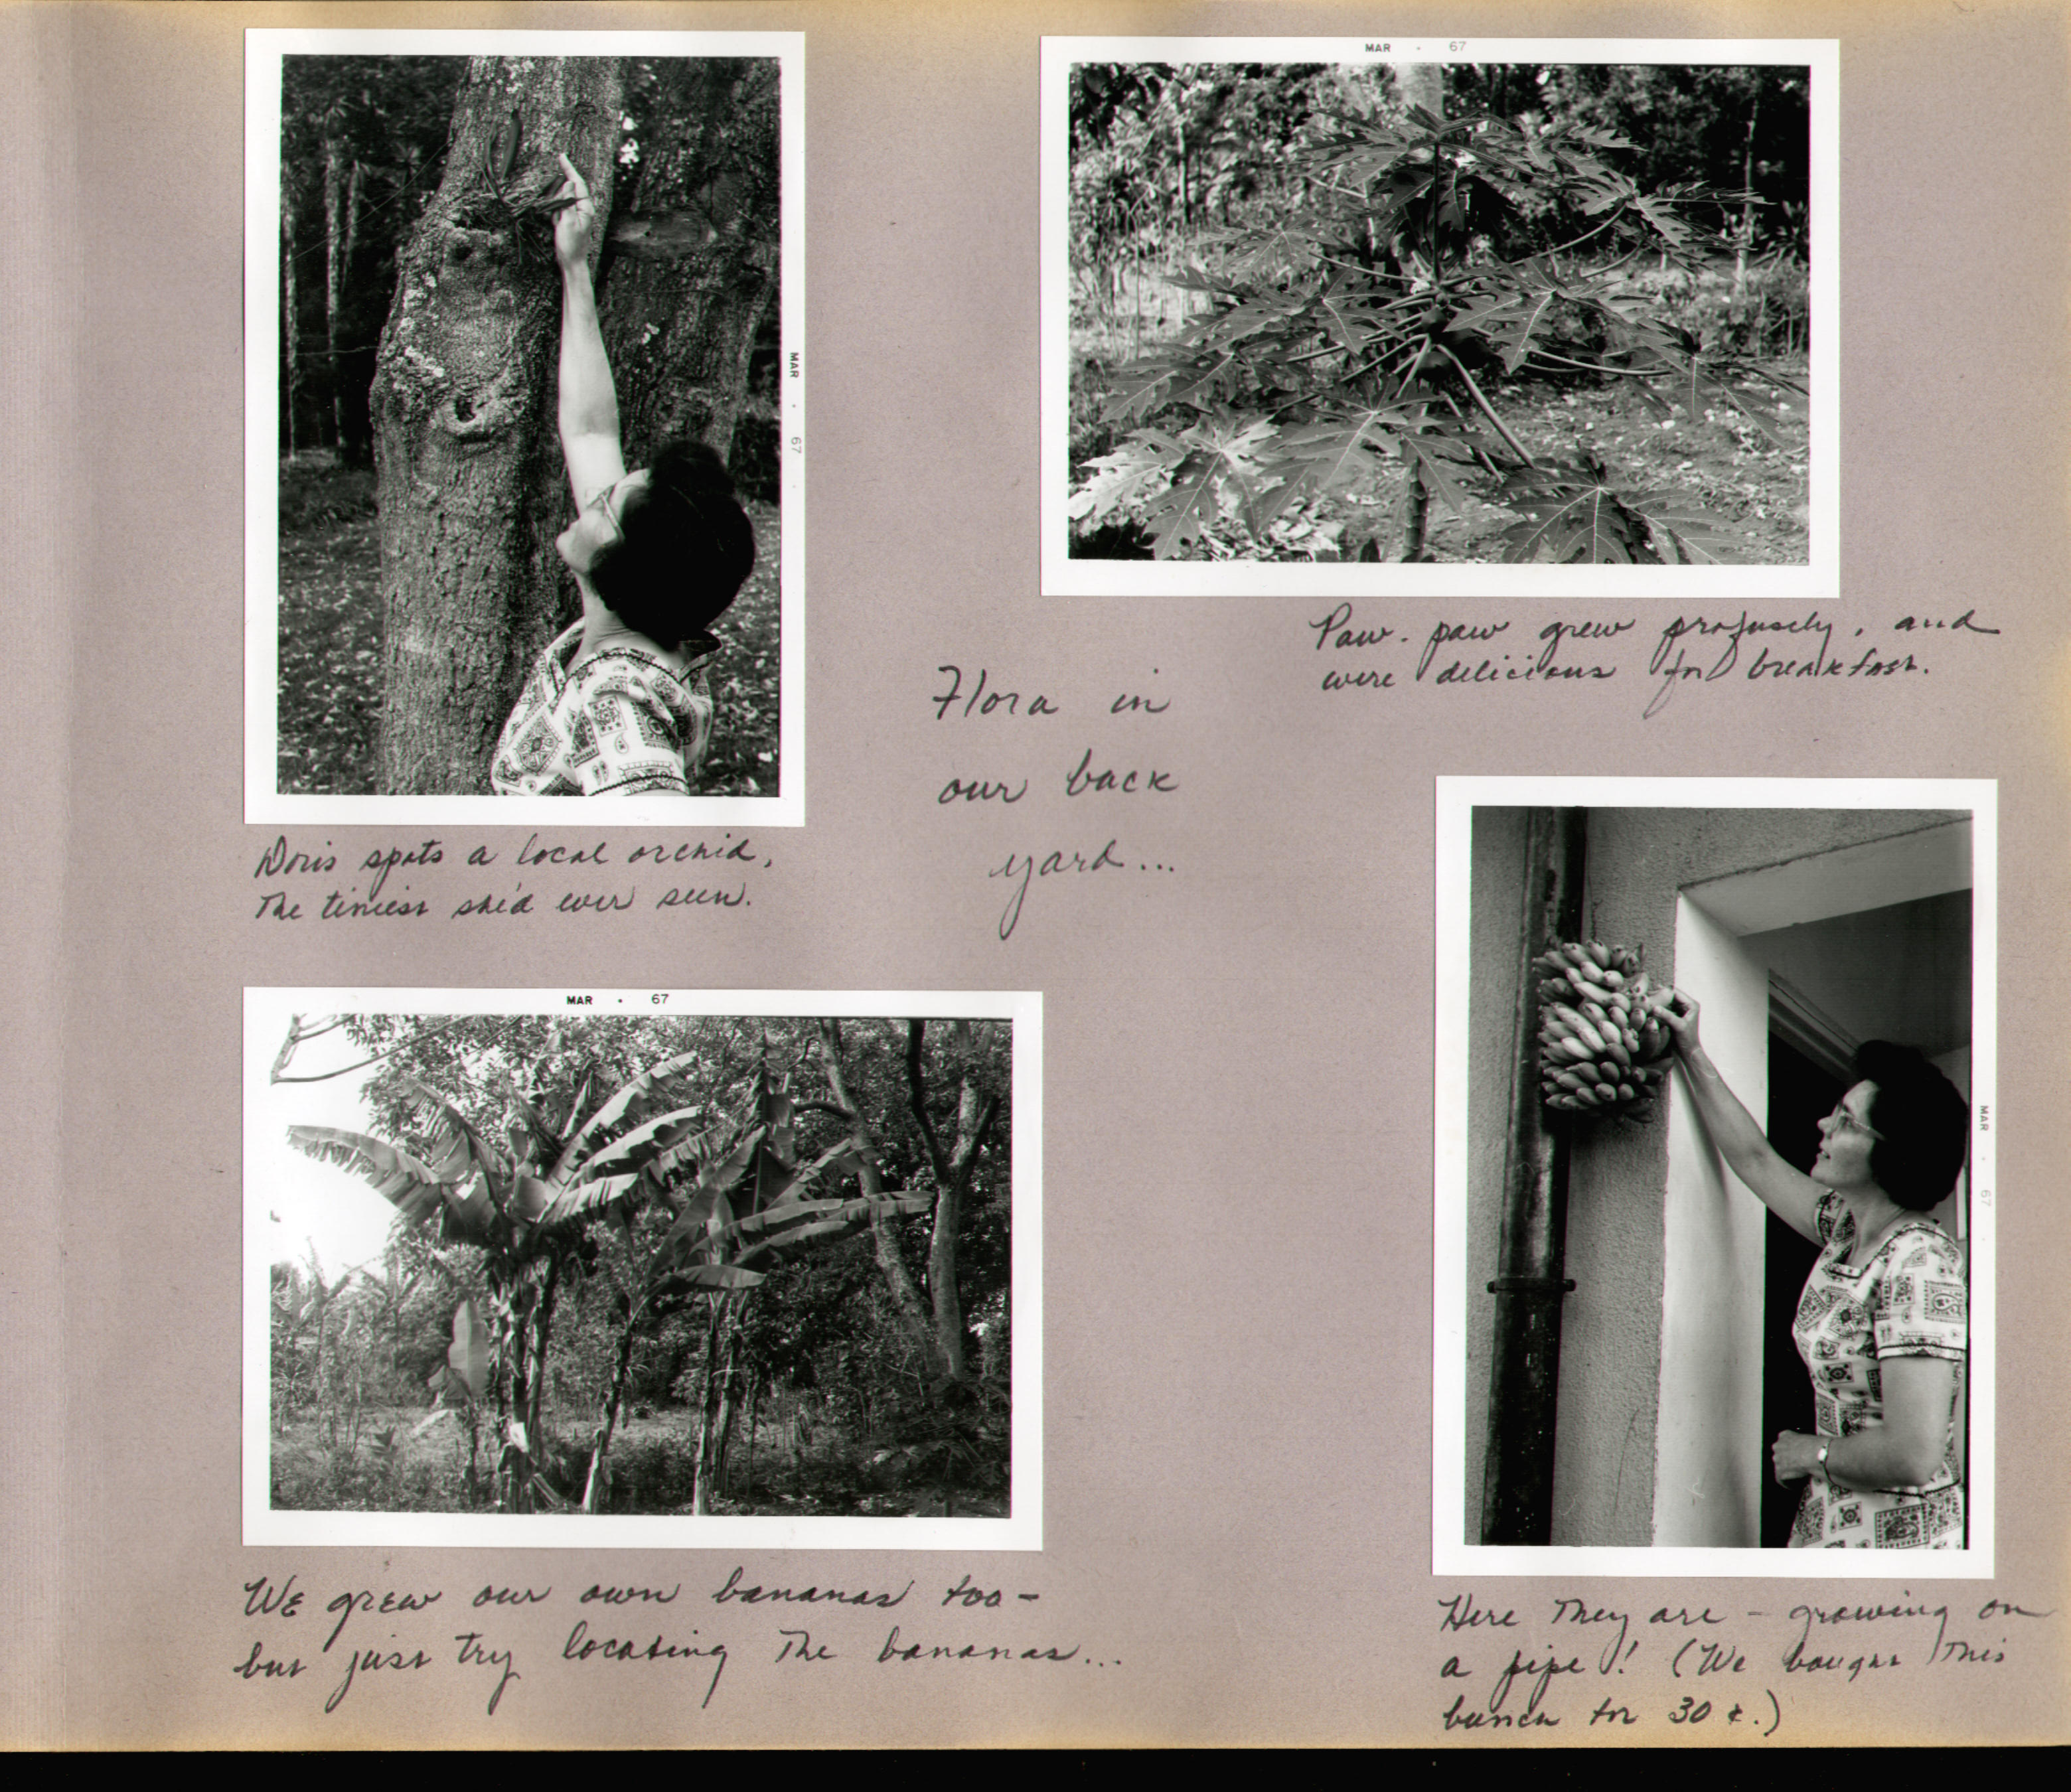 MAR · 67
Doris spots a local orchid,
The tiniest she'd ever seen.
MAR · 67
Paw-paw grew profusely, and
were delicious for breakfast.
Flora in
our back
yard...
MAR · 67
We grew our own bananas too-
but just try locating the bananas...
MAR · 67
Here they are - growing on
a pipe! (We bought this
bunch for 30¢.)